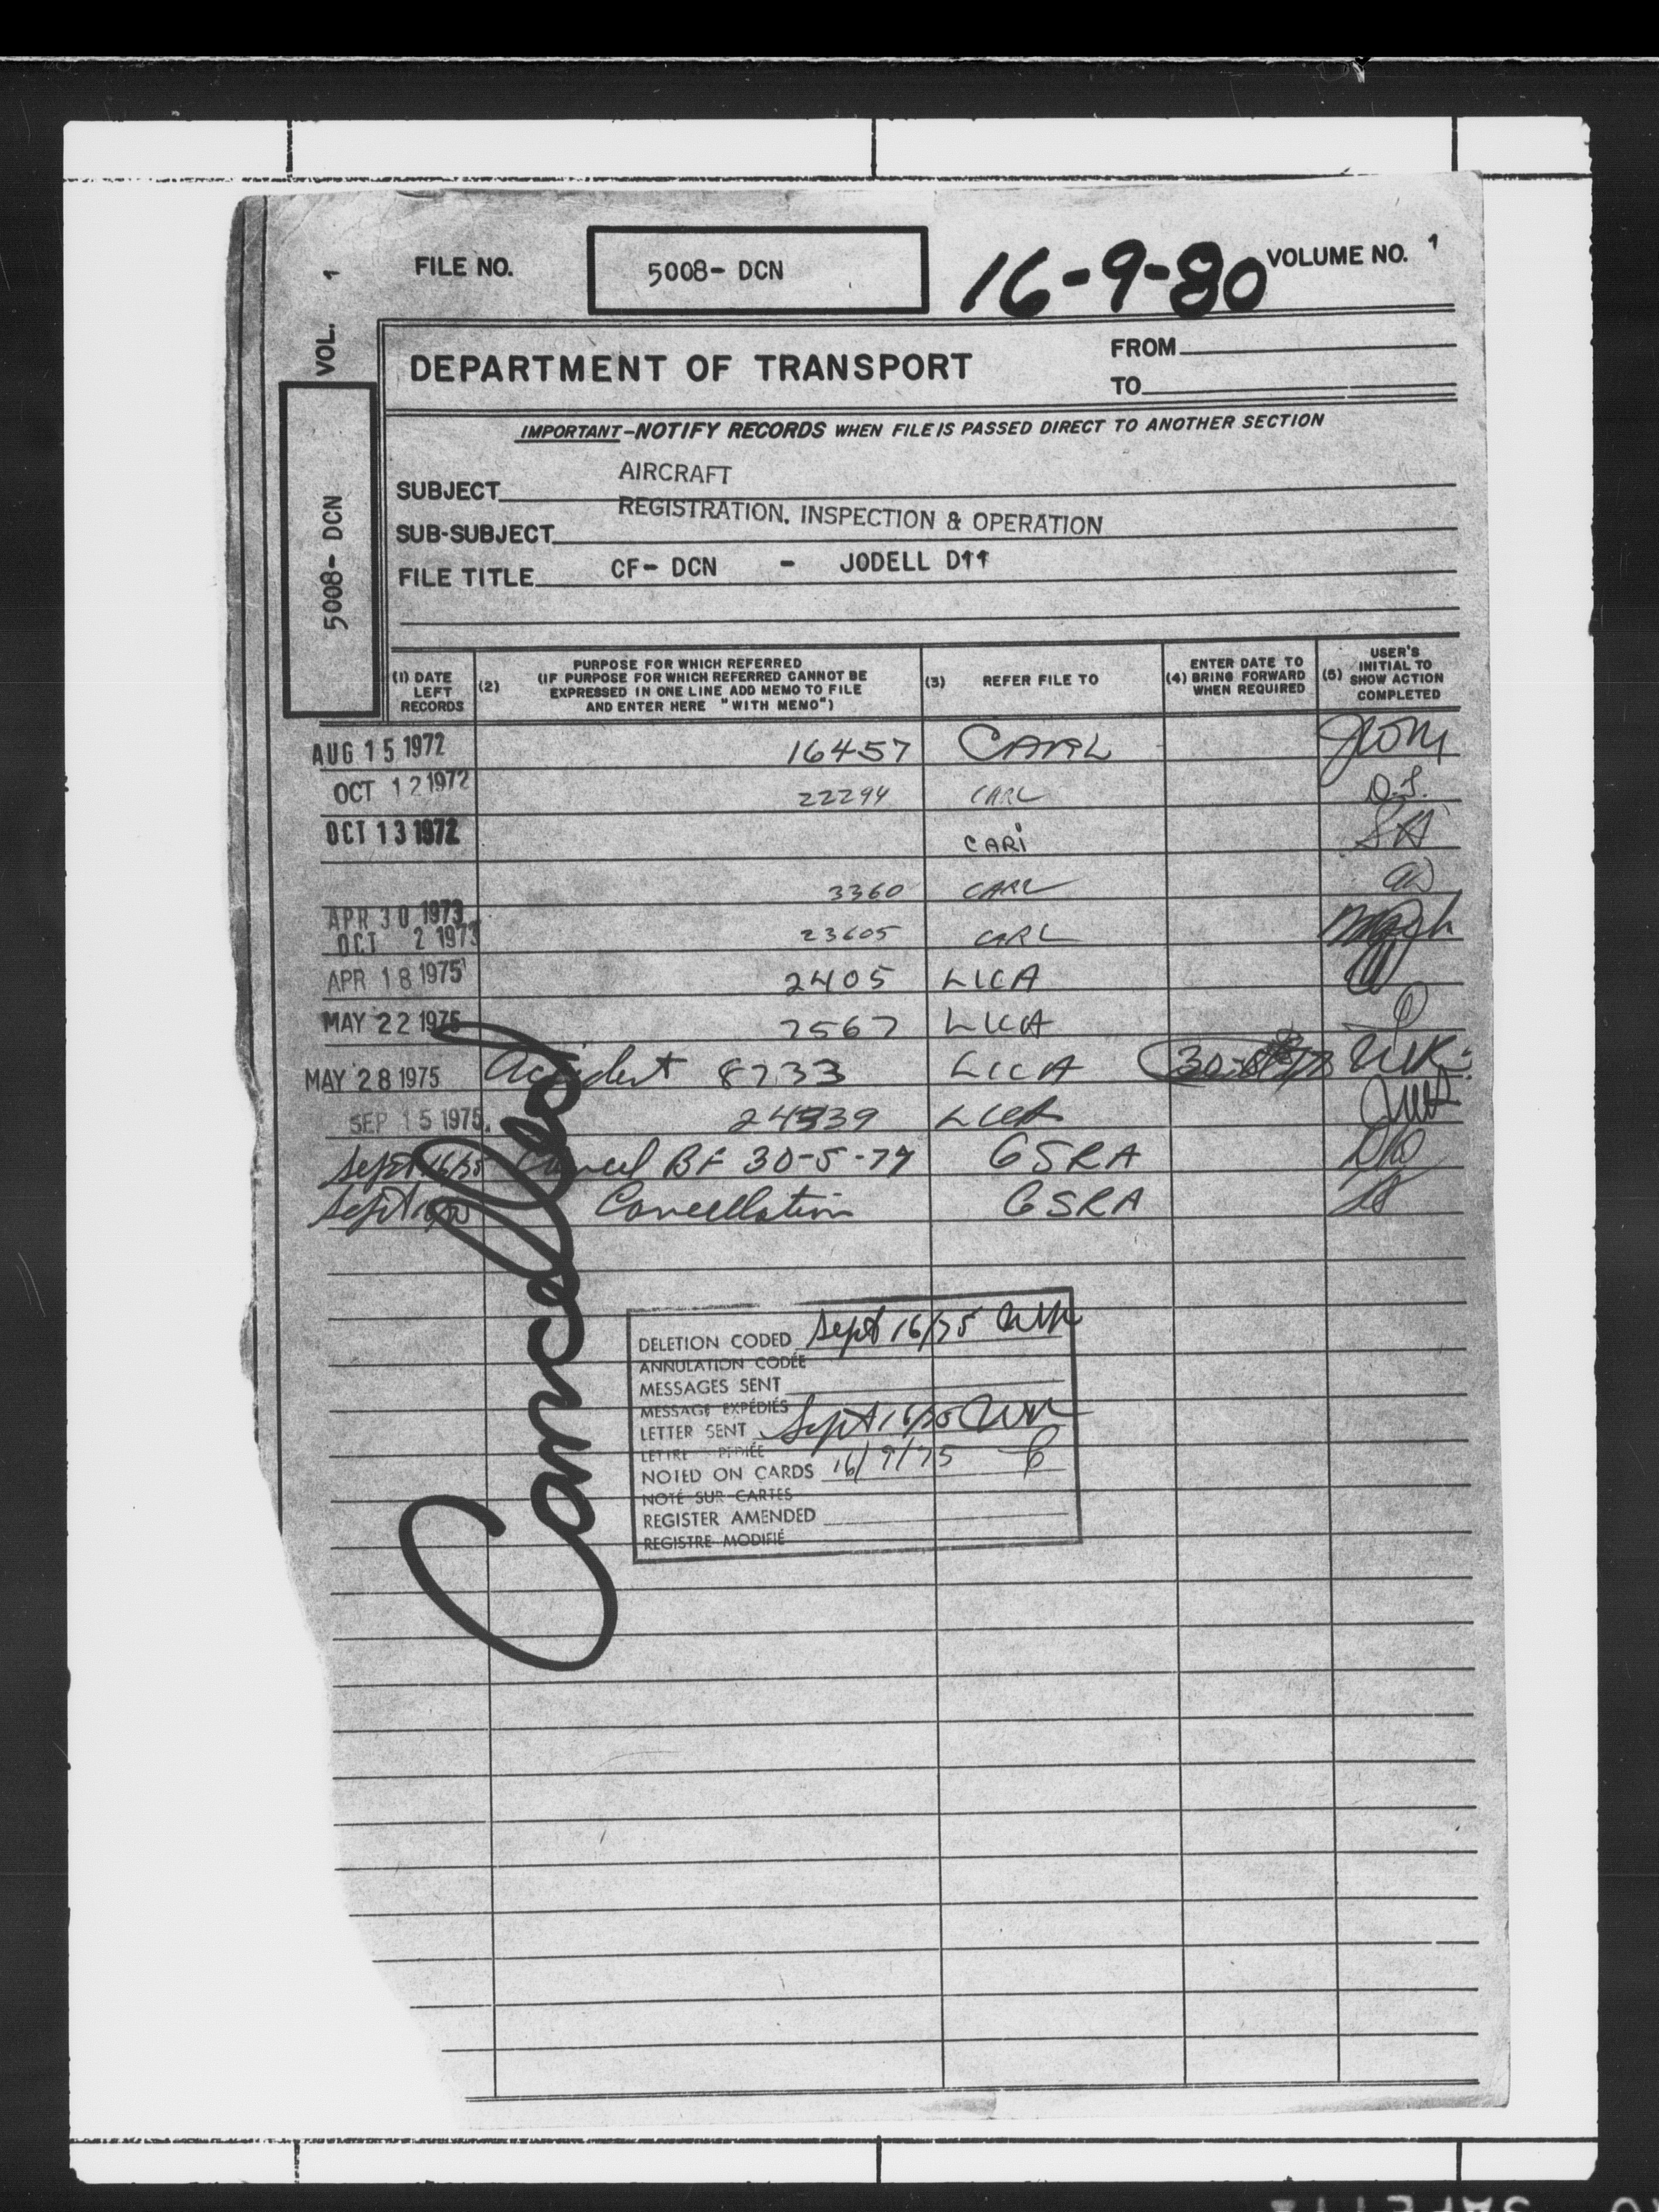 FILE NO. 5008- DCN 16-9-80 VOLUME NO. 1
VOL. 1
5008- DCN
DEPARTMENT OF TRANSPORT
FROM
TO
IMPORTANT-NOTIFY RECORDS WHEN FILE IS PASSED DIRECT TO ANOTHER SECTION
SUBJECT AIRCRAFT
SUB-SUBJECT REGISTRATION, INSPECTION & OPERATION
FILE TITLE CF- DCN - JODELL D11
(1) DATE LEFT RECORDS
(2) PURPOSE FOR WHICH REFERRED
(IF PURPOSE FOR WHICH REFERRED CANNOT BE
EXPRESSED IN ONE LINE ADD MEMO TO FILE
AND ENTER HERE "WITH MEMO")
(3) REFER FILE TO
(4) ENTER DATE TO
BRING FORWARD
WHEN REQUIRED
(5) USER'S
INITIAL TO
SHOW ACTION
COMPLETED
AUG 15 1972 16457 CARL
OCT 12 1972 22294 CARL D.S.
OCT 13 1972 CARI
3360 CARL
APR 30 1973
OCT 2 1973 23605 CARL
APR 18 1975 2405 LICA
MAY 22 1975 7567 LICA
MAY 28 1975 Accident 8733 LICA
SEP 15 1975 24939 LICA
Sept 16/75 Cancel BF 30-5-77 GSRA
Sept 16/75 Cancellation GSRA
Cancelled
DELETION CODED Sept 16/75
ANNULATION CODÉE
MESSAGES SENT
MESSAGE EXPÉDIÉS
LETTER SENT Sept 16/75
LETTRE EXPÉDIÉE
NOTED ON CARDS 16/9/75
NOTÉ SUR CARTES
REGISTER AMENDED
REGISTRE MODIFIÉ